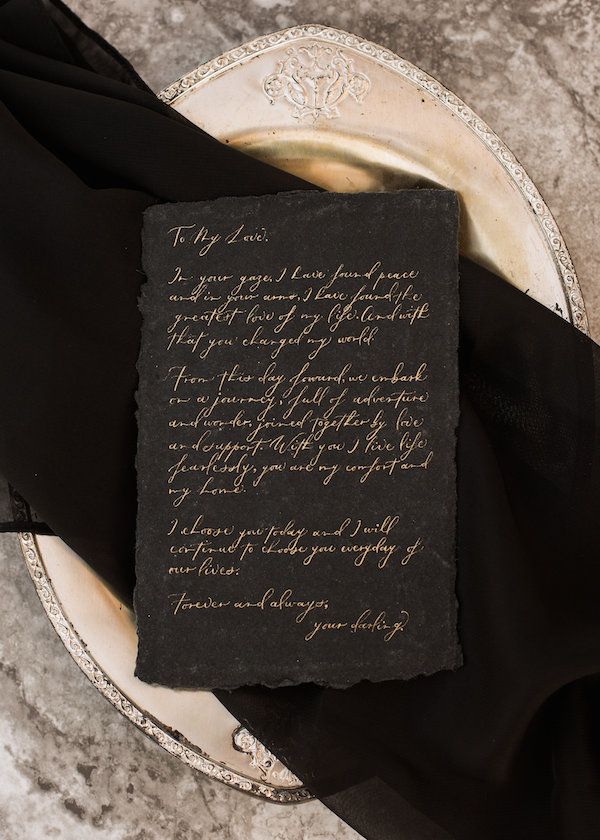 To My Love,
In your gaze, I have found peace
and in your arms, I have found the
greatest love of my life. And with
that you changed my world.
From this day foward, we embark
on a journey, full of adventure
and wonder, joined together by love
and support. With you I live life
fearlessly, you are my comfort and
my home.
I choose you today and I will
continue to choose you everyday of
our lives.
Forever and always,
your darling